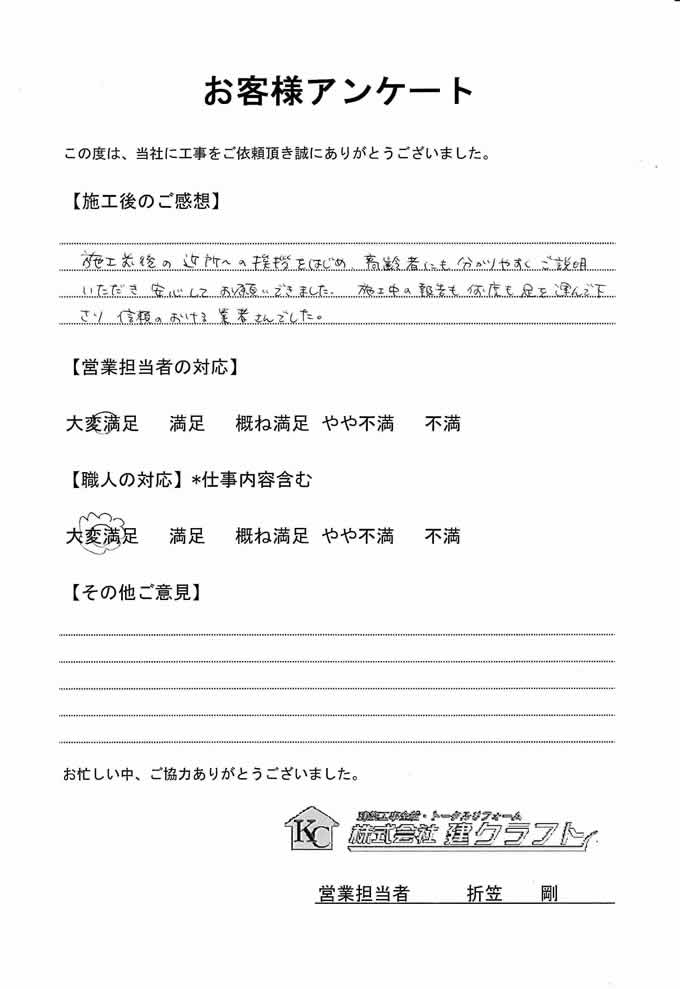 お客様アンケート
この度は、当社に工事をご依頼頂き誠にありがとうございました。
【施工後のご感想】
施工前後の近所への挨拶をはじめ、高齢者にも分かりやすくご説明
いただき安心してお願いできました。施工中の報告も何度も足を運んで下
さり信頼のおける業者さんでした。
【営業担当者の対応】
大変満足 満足 概ね満足 やや不満 不満
【職人の対応】*仕事内容含む
大変満足 満足 概ね満足 やや不満 不満
【その他ご意見】
お忙しい中、ご協力ありがとうございました。
建築工事全般・トータルリフォーム
KC 株式会社 建クラフト
営業担当者 折笠 剛